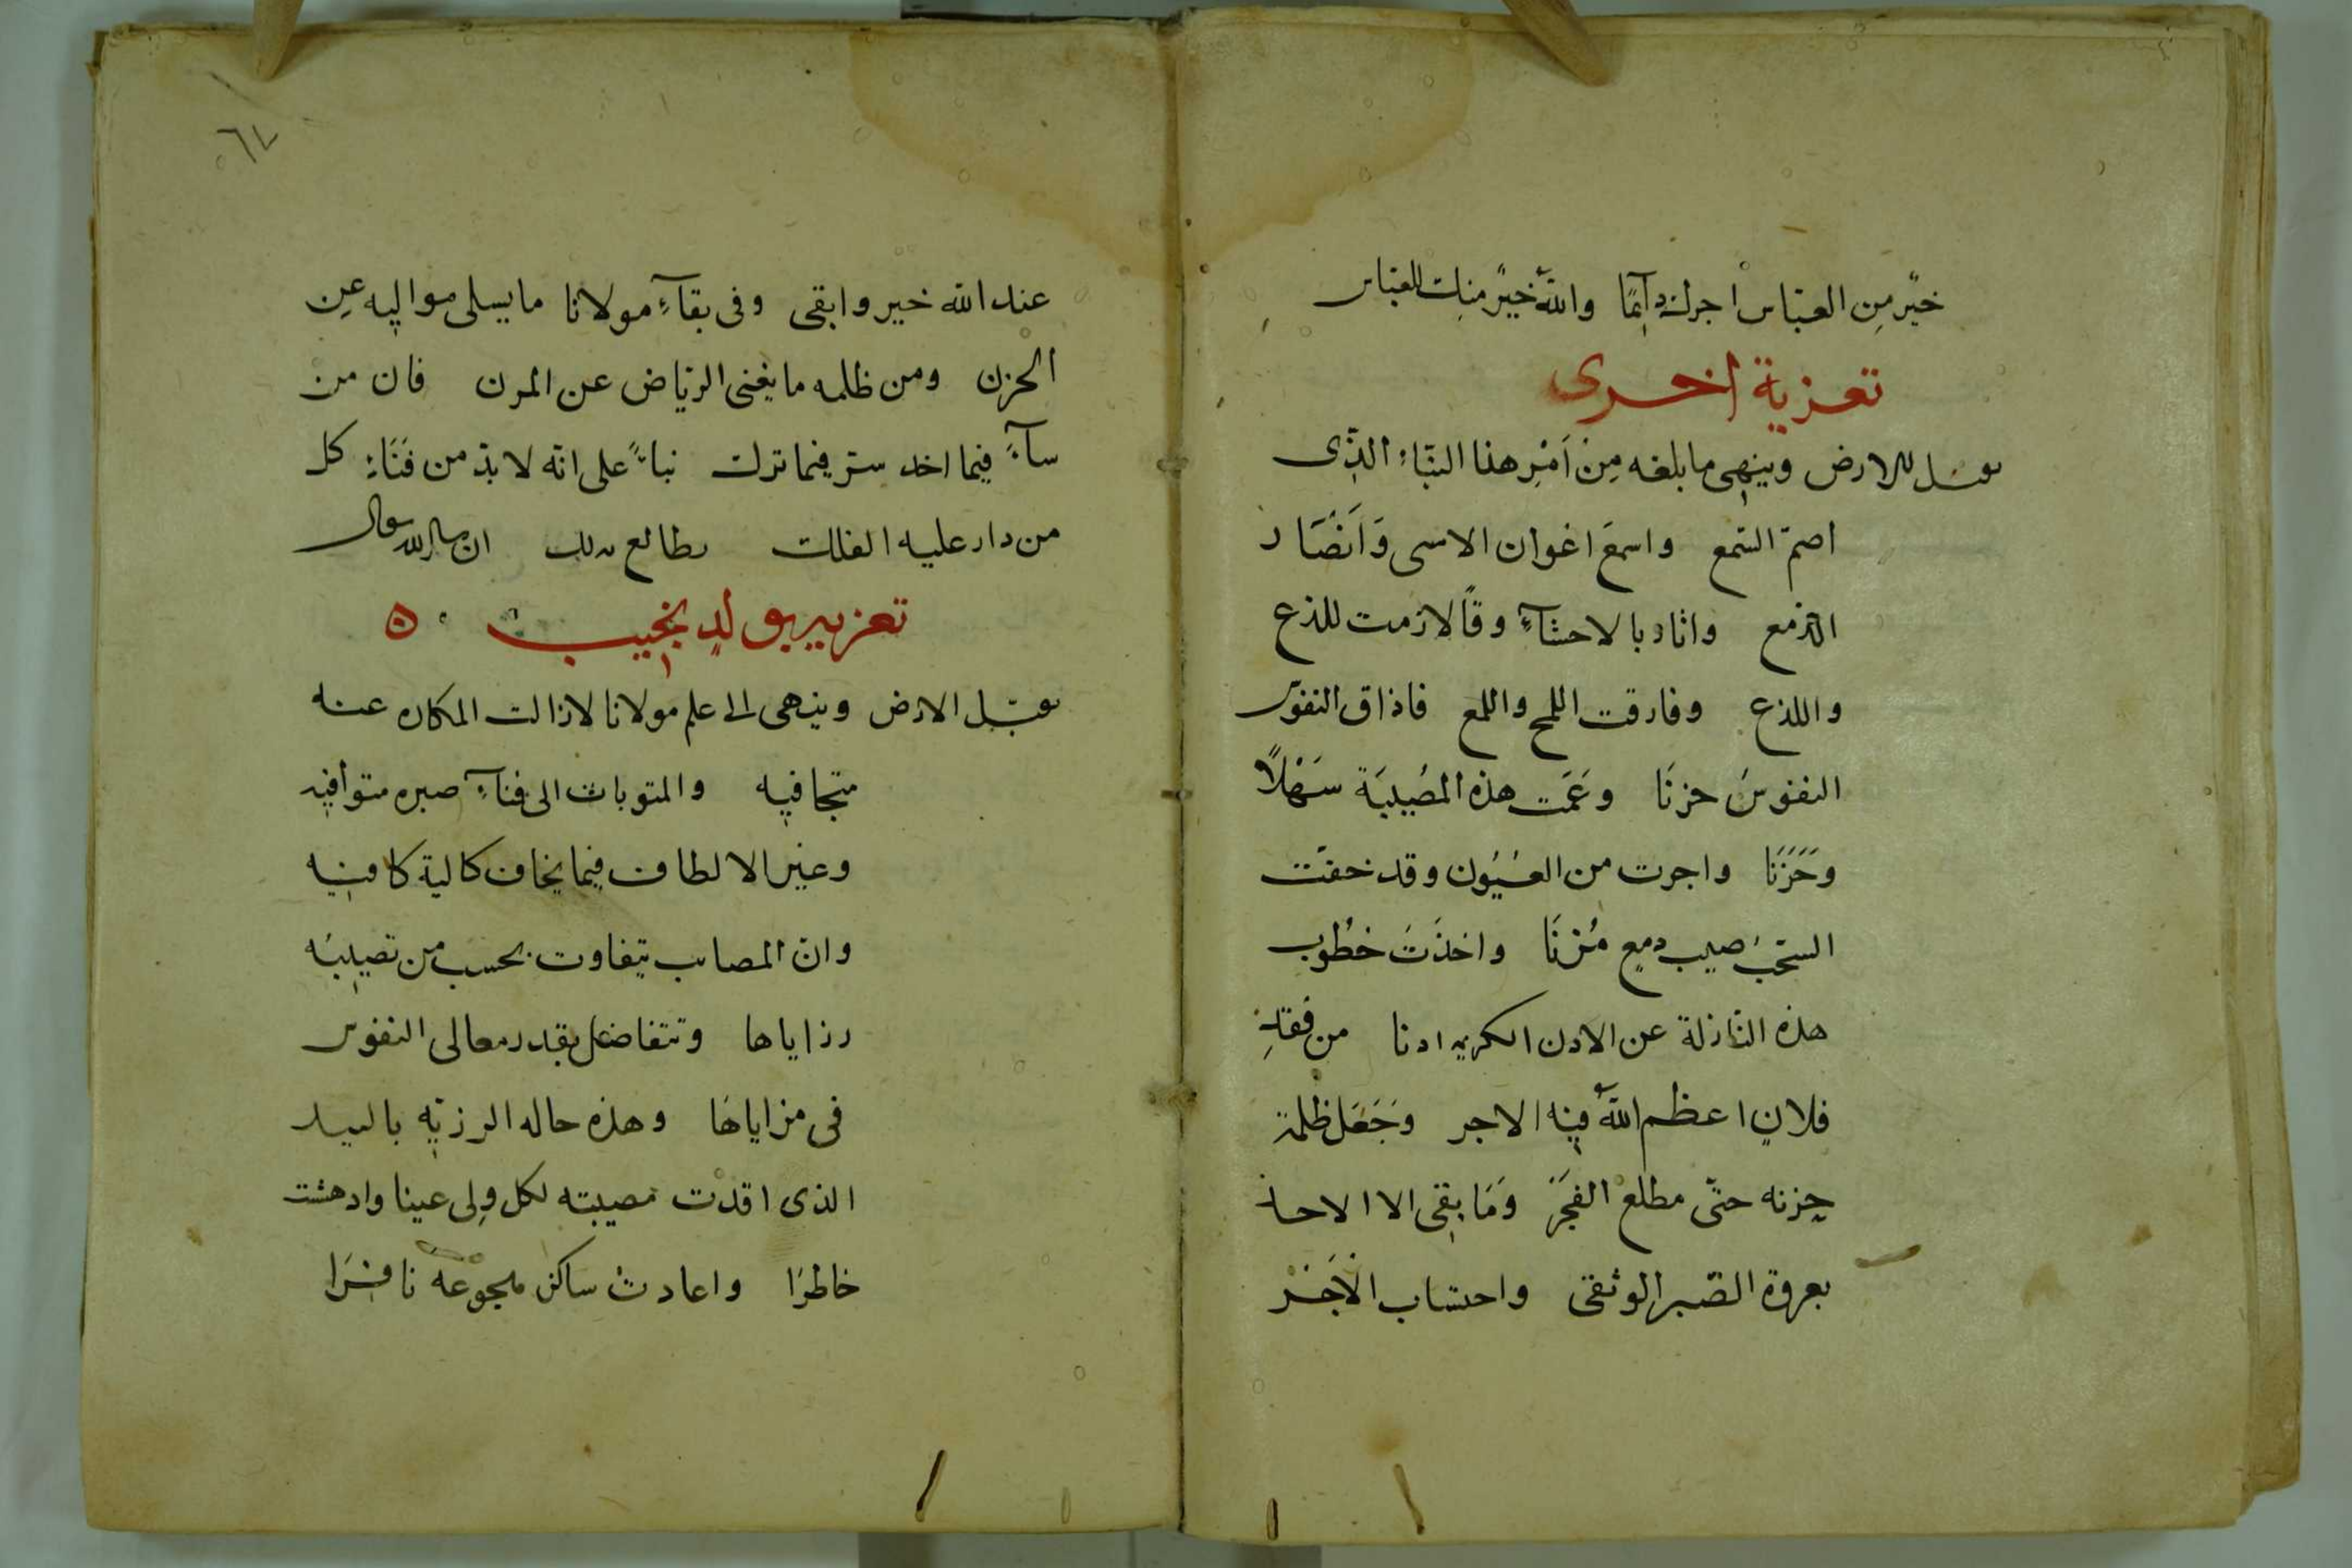 خيرٌ من العبّاس اجرك دآئمًا والله خيرٌ منك للعبّاس
تعزية اخرى
يقبّل الارض وينهى ما بلغه مِن اَمْرِ هذا النبّاء الذّى
اصمّ السّمع واسمعَ اعوان الاسى وَاَنصَار
الدّمع واثار بالاحشآءِ وقًا لازمت للذع
واللذع وفارقت اللمح واللمع فاذاق النفوس
النفوسَ حزنَا وعَمّت هذه المصُيبَة سَهْلاً
وحَزَنَا واجرت من العُيُون وقد خفّت
السّحبُ صيب دمعٍ مُزنَا واخذَتَ خطُوب
هذه النّازلة عن الاذن الكريمه اذنا من فقدِ
فلانٍ اعظم اللهُ فيه الاجر وجَعَل ظلمة
حِزنه حتّى مطلع الفجَرْ وَمَا بقى الا الاخذ
بعروة الصّبر الوثقى واحتساب الاَجَرْ
٦٧
عند الله خير وابقى وفى بقآءِ مولانا ما يسلى مواليه عن
الحزن ومن ظلمه ما يغنى الرياض عن المزن فان من
سآءَ فيما اخذ ستر فيما ترك نباءً على انّه لا بدّ من فَنَاءِ كل
من دار عليه الفلك يطالع بذلك ان شا الله تعالى
تعزية بولدٍ نجيب ٥
يقبّل الارض وينهى الى علم مولانا لا زالت المكاره عنه
متجافيه والمثوبات الى فنآءِ صبره متوافيه
وعين الالطاف فيما يخاف كالية كافيه
وان المصايب يتفاوت بحسب من تصيبُه
رزاياها وتتفاضل بقدر معالى النفوس
فى مزاياهَا وهذه حاله الرزيّه بالسيد
الذى اقذت مصيبته لكل ولِى عينا وادهشت
خاطرًا واعادت ساكن هجوعه نافرَا